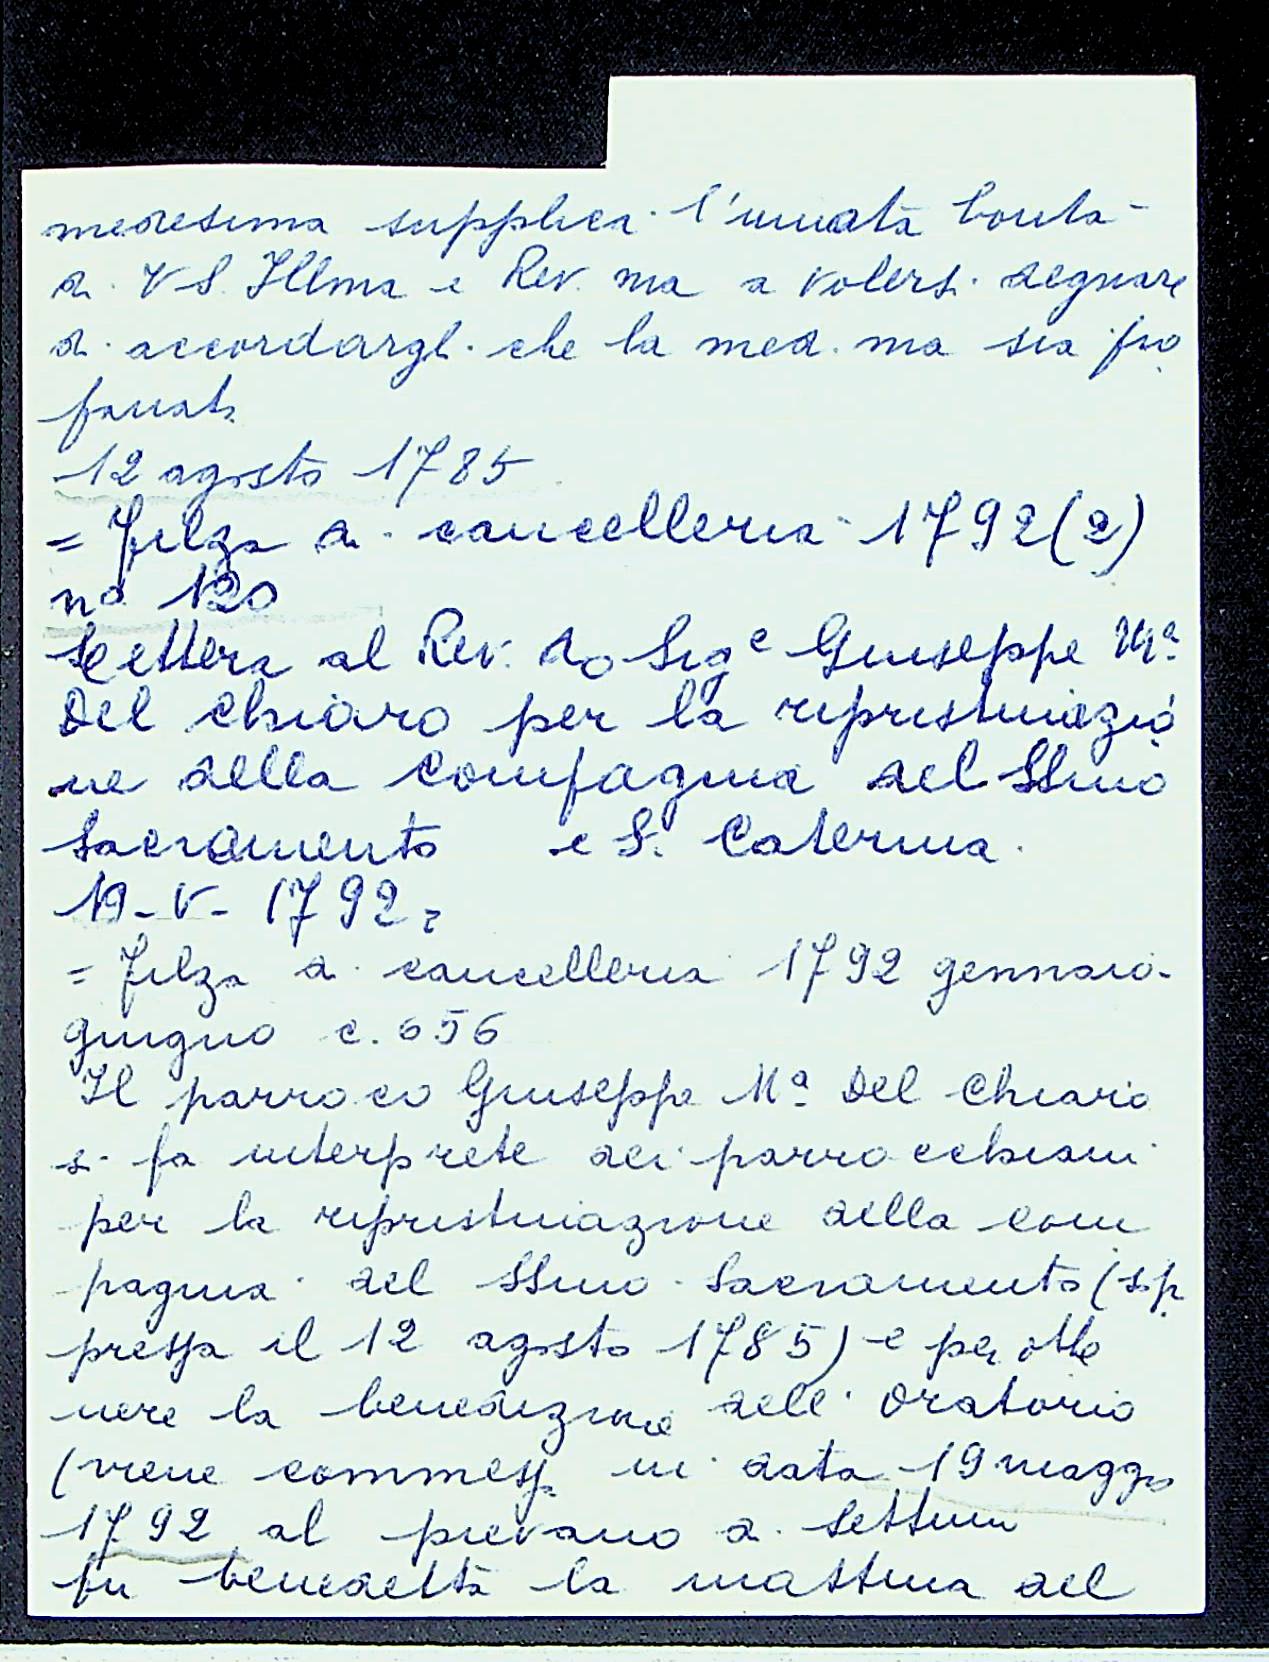 medesima supplica l'innata bontà
di VS. Illma e Rev. ma a volersi degnare
di accordargli che la med. ma sia pro
fanata
12 agosto 1785
= Filza di cancelleria 1792 (2)
nº 120
Lettera al Rev. do Sigʳᵉ Giuseppe Mª
Del Chiaro per la ripristinazio
ne della Compagnia del SSmo
Sacramento e S. Caterina.
19-V-1792
= Filza di cancelleria 1792 gennaio-
giugno c. 656
Il parroco Giuseppe Mª Del Chiaro
si fa interprete dei parrocchiani
per la ripristinazione della com
pagnia del SSmo Sacramento (sop
pressa il 12 agosto 1785) e per otte
nere la benedizione dell'oratorio
(viene commessa in data 19 maggio
1792 al pievano di Settimo
fu benedetta la mattina del